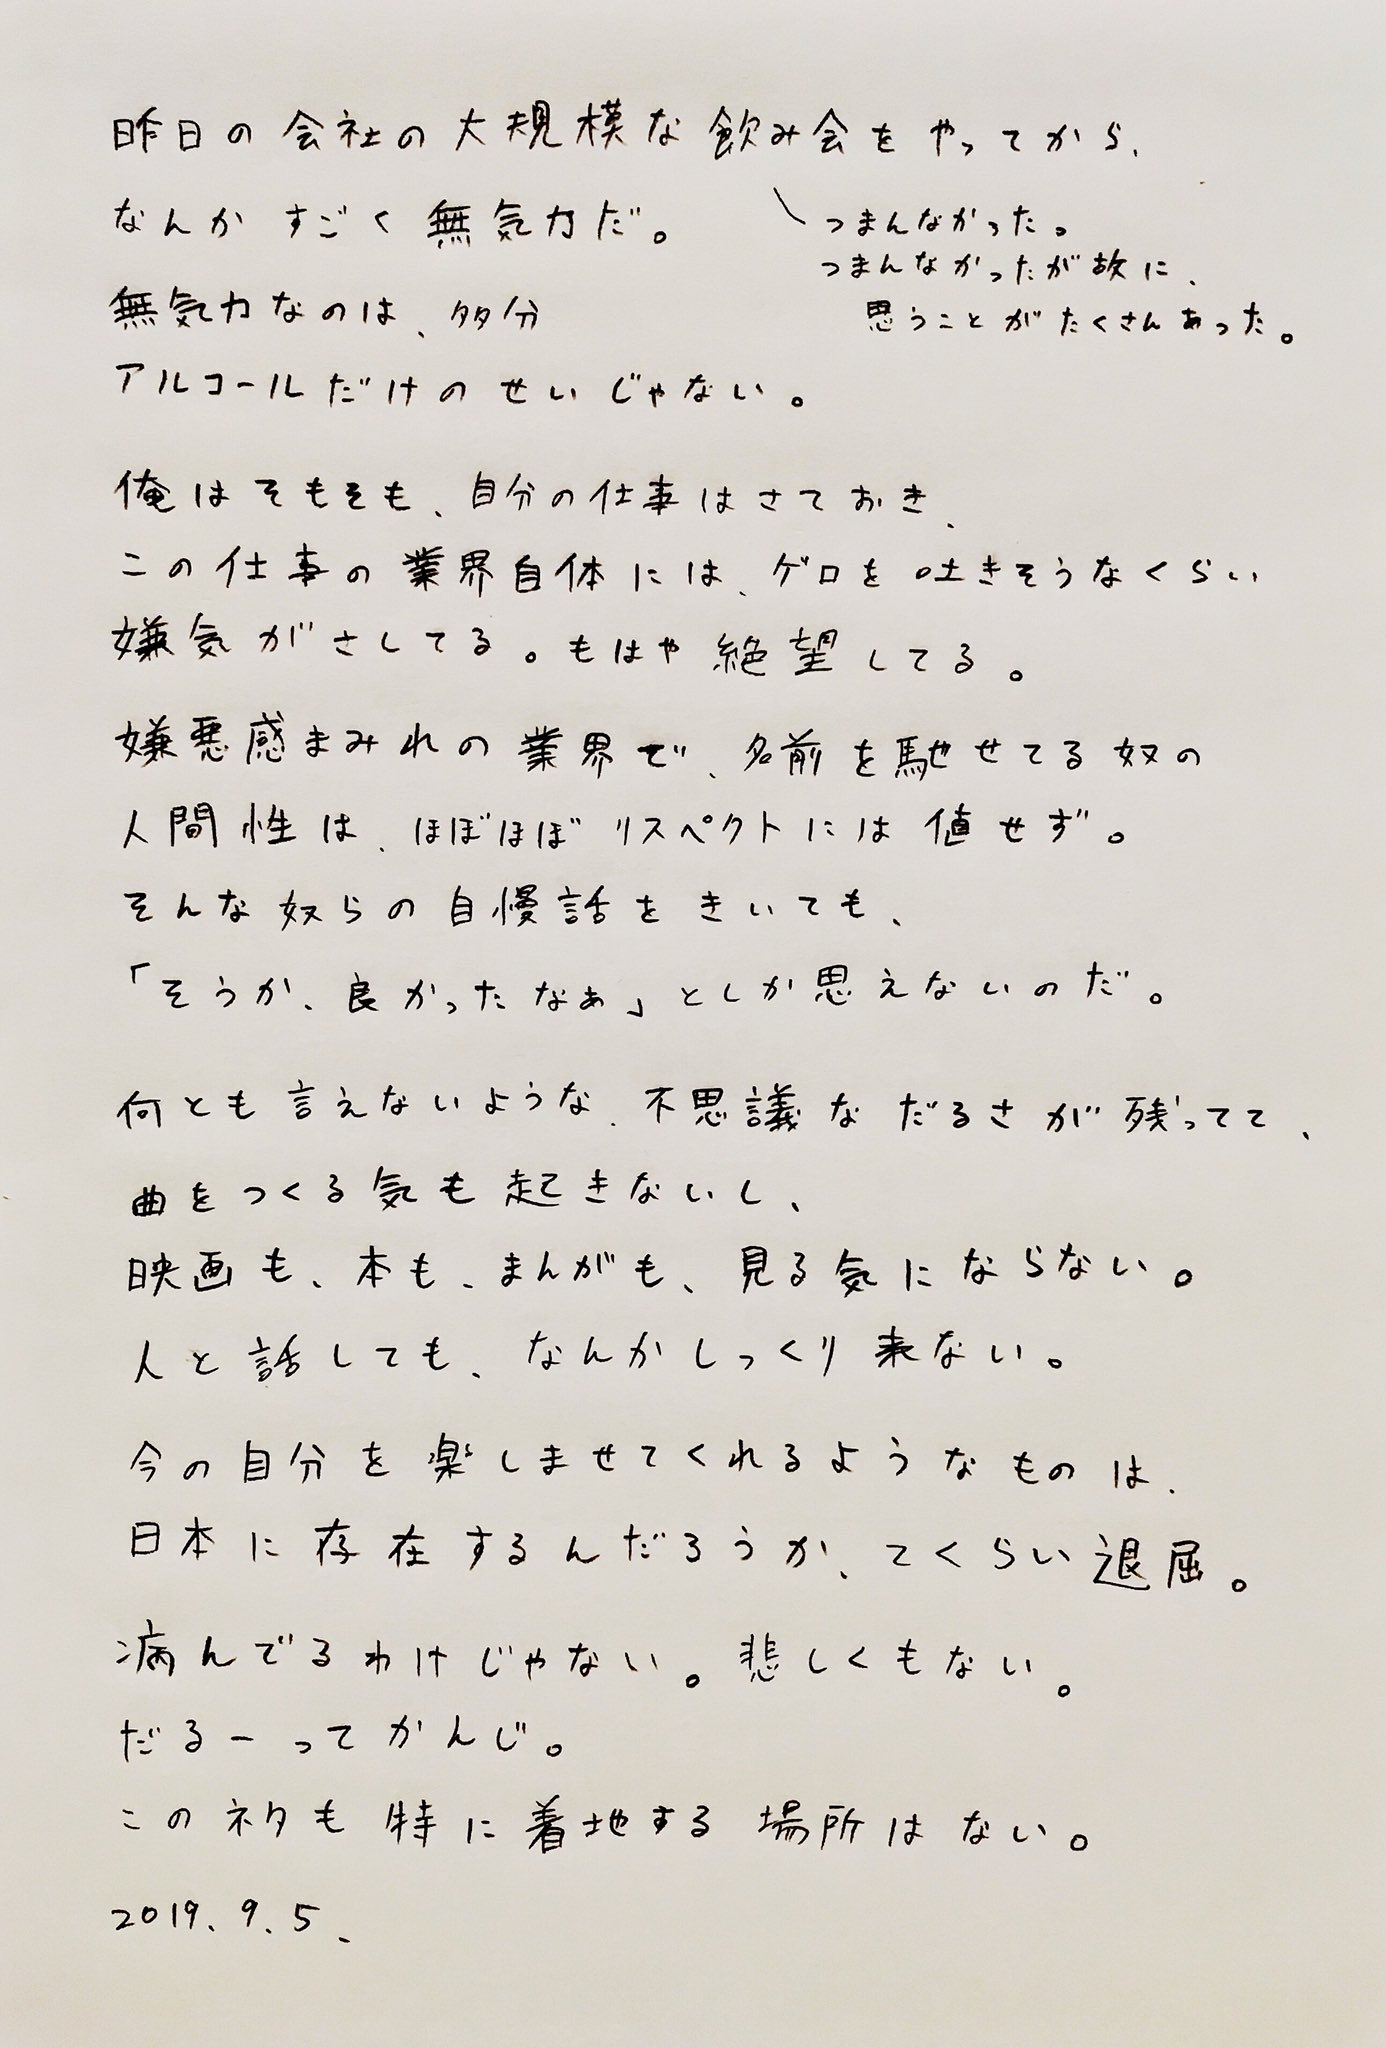 昨日の会社の大規模な飲み会をやってから、
なんかすごく無気力だ。
つまんなかった。
つまんなかったが故に、
思うことがたくさんあった。
無気力なのは、多分
アルコールだけのせいじゃない。
俺はそもそも、自分の仕事はさておき、
この仕事の業界自体には、ゲロを吐きそうなくらい
嫌気がさしてる。もはや絶望してる。
嫌悪感まみれの業界で、名前を馳せてる奴の
人間性は、ほぼほぼリスペクトには値せず。
そんな奴らの自慢話をきいても、
「そうか、良かったなぁ」としか思えないのだ。
何とも言えないような、不思議なだるさが残ってて、
曲をつくる気も起きないし、
映画も、本も、まんがも、見る気にならない。
人と話しても、なんかしっくり来ない。
今の自分を楽しませてくれるようなものは、
日本に存在するんだろうか、てくらい退屈。
病んでるわけじゃない。悲しくもない。
だるーってかんじ。
このネタも特に着地する場所はない。
2019.9.5.